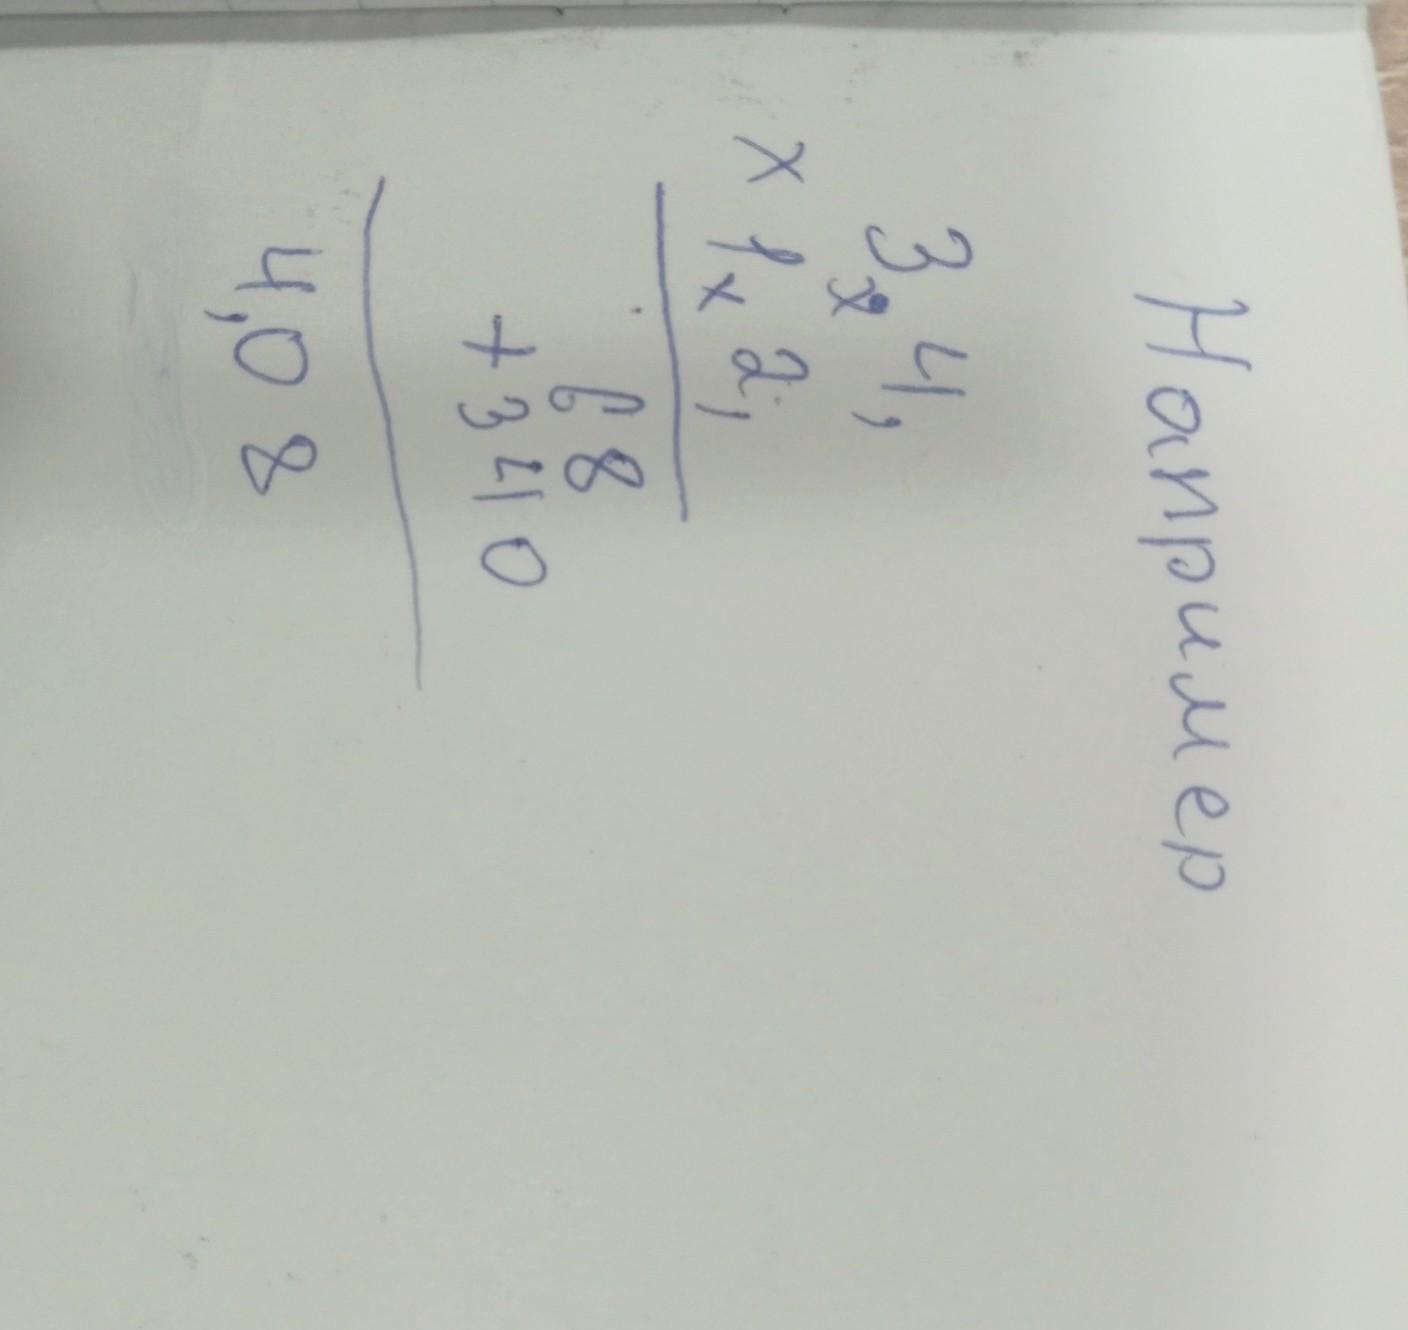 Например
3x 4,
x 1x 2,
68
+ 340
4,08